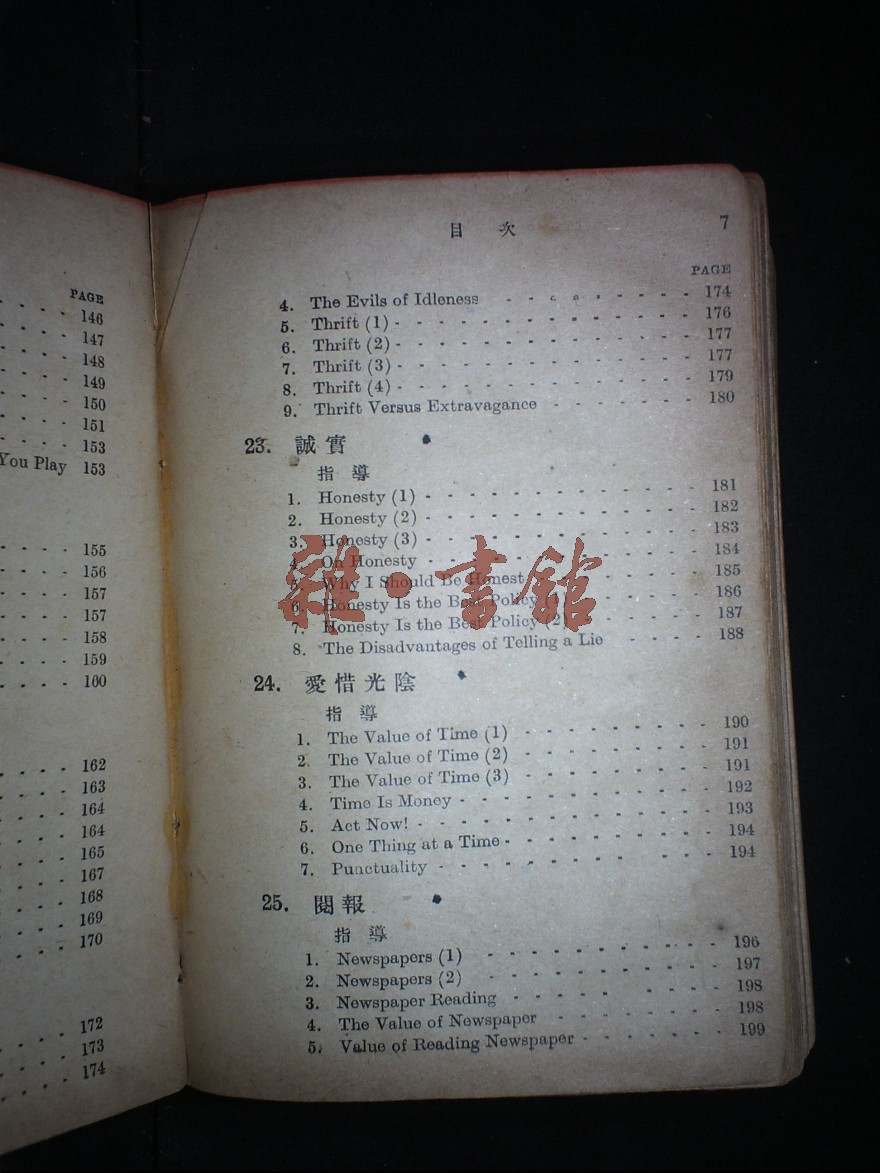 PAGE
146
147
148
149
150
151
153
You Play 153
155
156
157
157
158
159
160
162
163
164
164
165
167
168
169
170
172
173
174
目 次 7
PAGE
4. The Evils of Idleness - - - - - - - 174
5. Thrift (1) - - - - - - - - - - - 176
6. Thrift (2) - - - - - - - - - - - 177
7. Thrift (3) - - - - - - - - - - - 177
8. Thrift (4) - - - - - - - - - - - 179
9. Thrift Versus Extravagance - - - - - 180
23. 誠實
指導
1. Honesty (1) - - - - - - - - - - 181
2. Honesty (2) - - - - - - - - - - 182
3. Honesty (3) - - - - - - - - - - 183
4. On Honesty - - - - - - - - - - 184
5. Why I Should Be Honest - - - - - - 185
6. Honesty Is the Best Policy (1) - - - - 186
7. Honesty Is the Best Policy (2) - - - - 187
8. The Disadvantages of Telling a Lie - - - - 188
24. 愛惜光陰
指導
1. The Value of Time (1) - - - - - - - 190
2. The Value of Time (2) - - - - - - - 191
3. The Value of Time (3) - - - - - - - 191
4. Time Is Money - - - - - - - - - 192
5. Act Now! - - - - - - - - - - - 193
6. One Thing at a Time - - - - - - - - 194
7. Punctuality - - - - - - - - - - 194
25. 閱報
指導
1. Newspapers (1) - - - - - - - - - 196
2. Newspapers (2) - - - - - - - - - 197
3. Newspaper Reading - - - - - - - - 198
4. The Value of Newspaper - - - - - - 198
5. Value of Reading Newspaper - - - - - 199
雜·書館